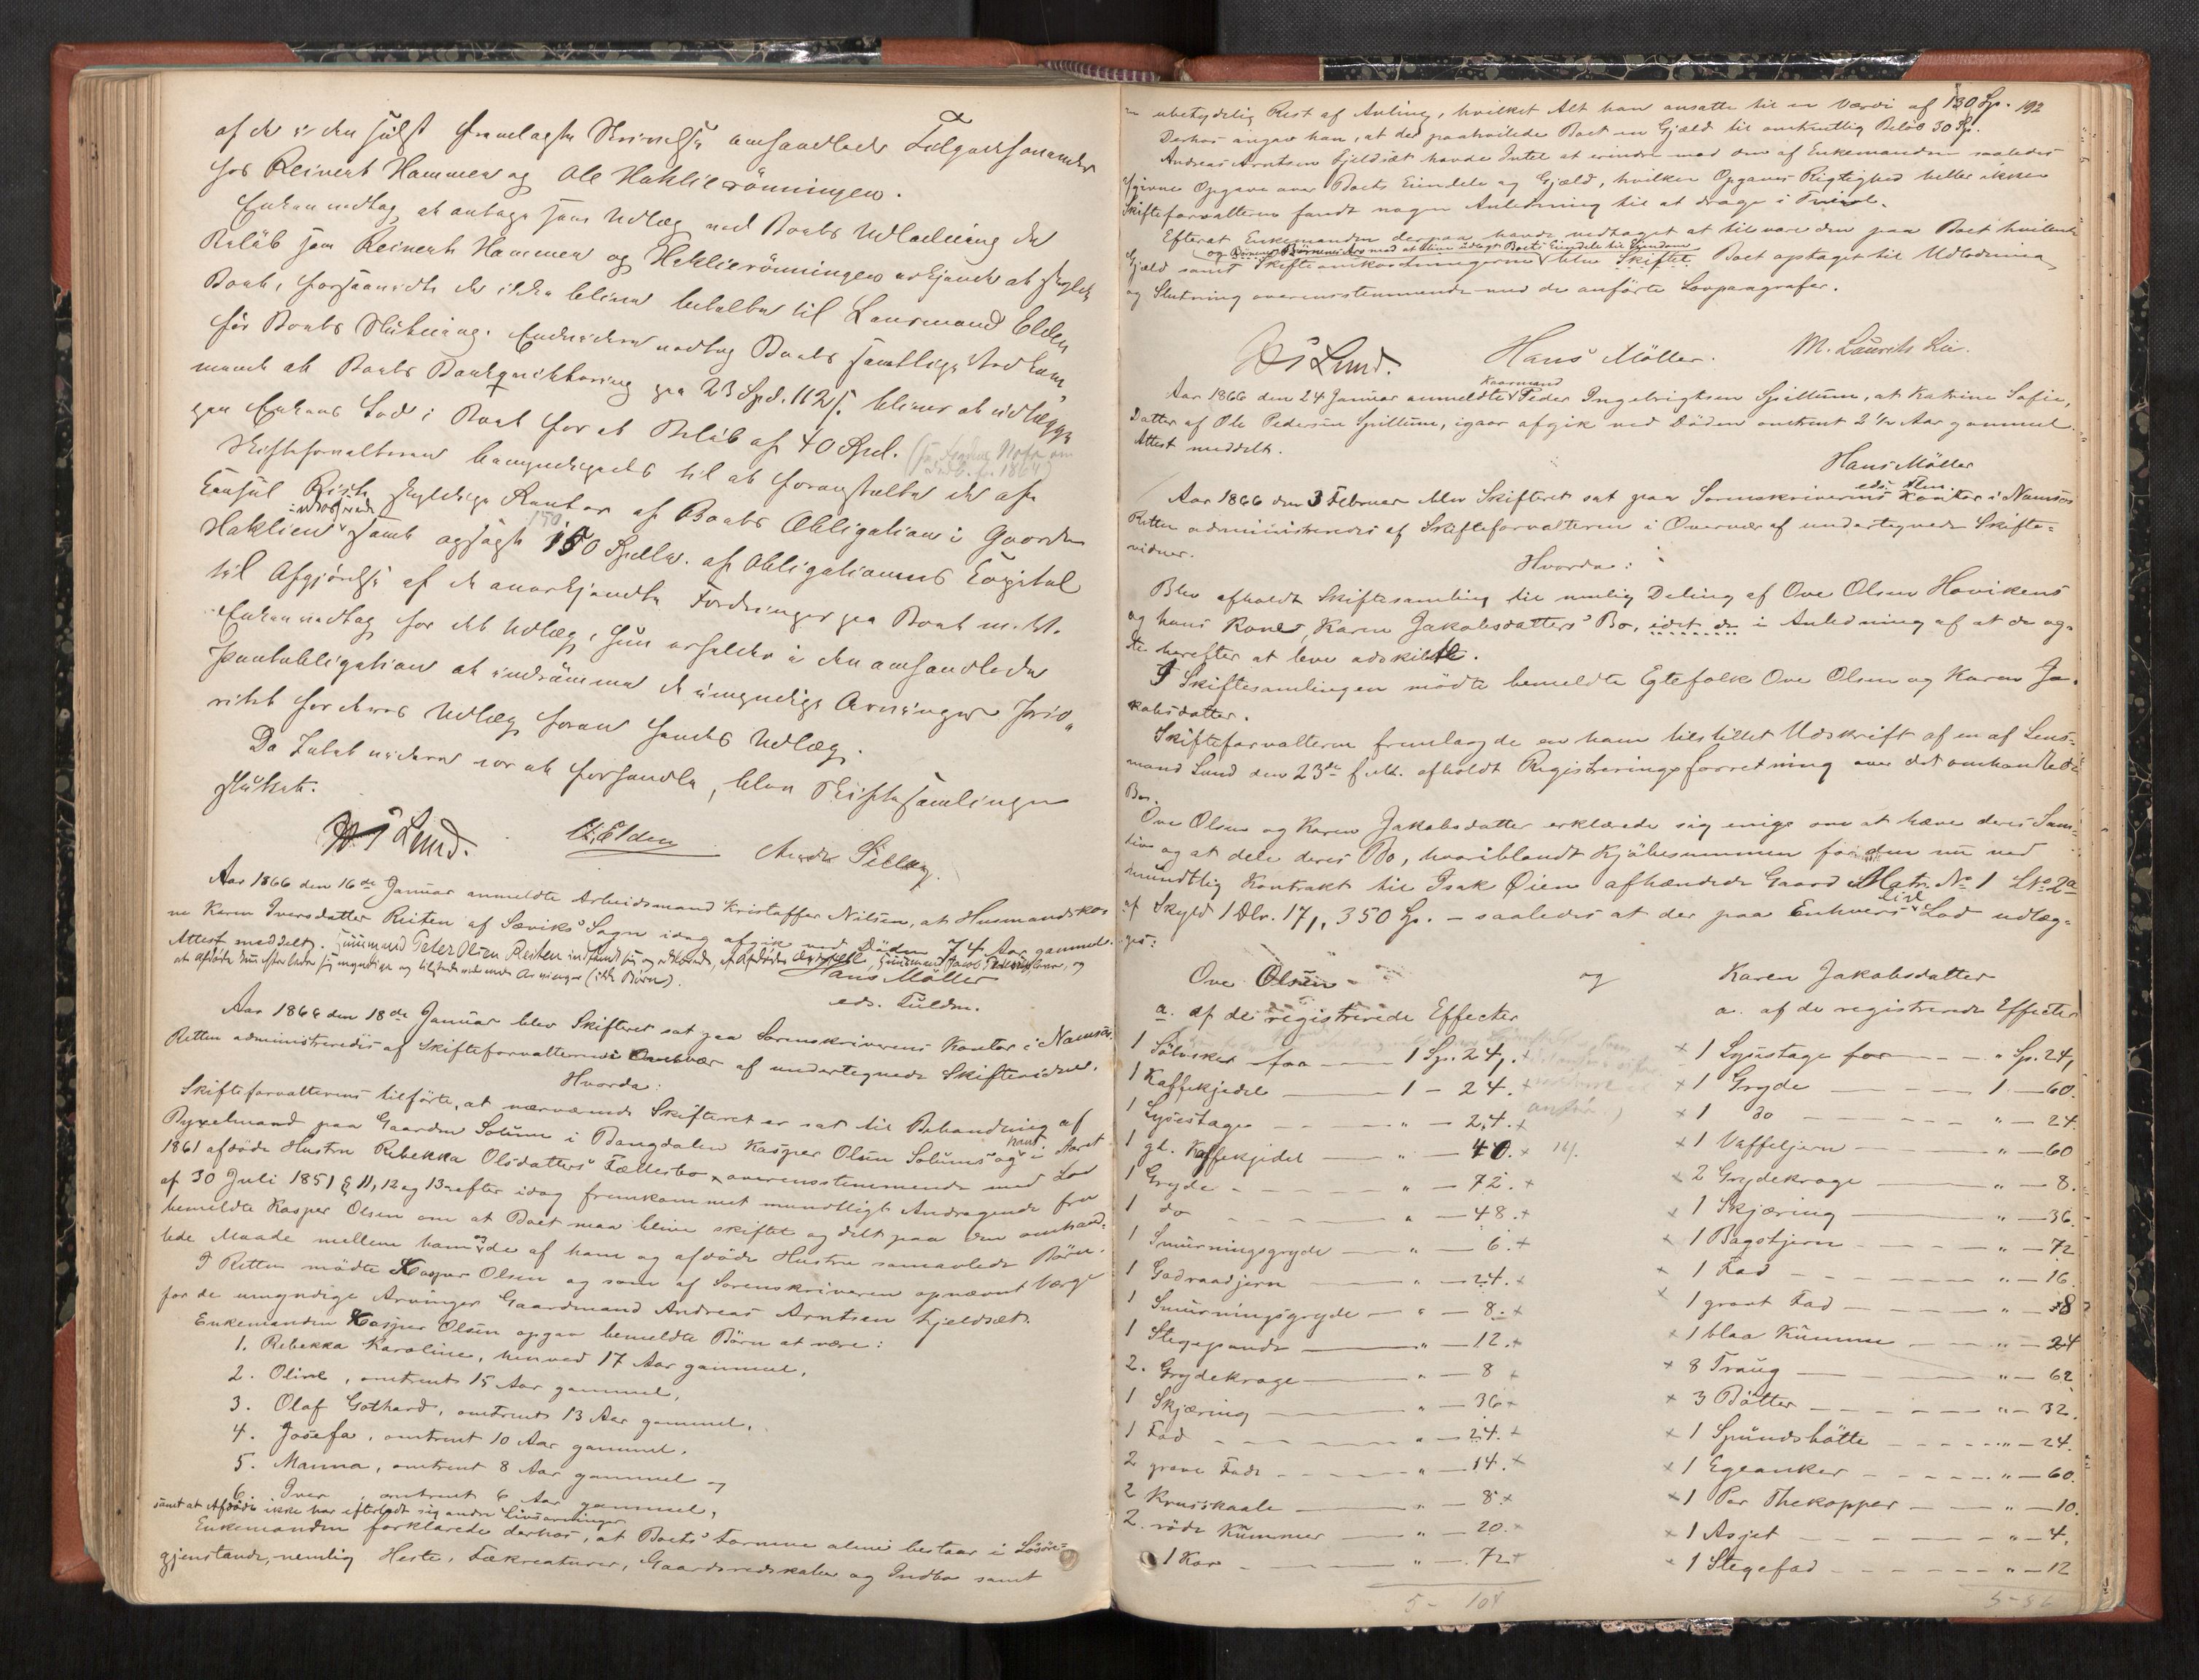 af de i den sidst fremlagte Skrivelse omhandlede Tilgodehavender
hos Reinert Hammer og Ole Haklierönningen.
Enken vedtog at antage som Udlæg ved Boets Udlodning de
Beløb som Reinert Hammer og Haklierönningen erkjendt at skylde
Boet, forsaavidt de ikke bliver betalte til Lensmand Elden
før Boets Slutning. Endvidere vedtog Boets samtlige Vedkom-
mende at Boets Bankqvittering paa 23 Spd. 112 s. bliver at udlægge
paa Enkens Lod i Boet for et Beløb af 40 Spd.
Skifteforvalteren bemyndigedes til at foranstalte de af
Consul Resch skyldige Renter af Boets Obligation i Gaarden
Haklien indfordrede samt opsagt 150 Spdlr. af Obligationens Capital
til Afgjörelse af de anerkjendte Fordringer paa Boet m. M.
Enken vedtog for det Udlæg, hun erholder i den omhandlede
Pantobligation at indrömme de umyndige Arvinger Prio-
ritet for deres Udlæg foran hendes Udlæg.
Da Intet videre var at forhandle, blev Skiftesamlingen
sluttet.
Lund. Elden
Aar 1866 den 16de Januar anmeldte Arbeidsmand Kristoffer Nilsen, at Husmandsko-
ne Karen Iversdatter Reiten af Sæviks Sogn idag afgik ved Döden 74 Aar gammel.
Attest meddelt. Huusmand Peter Olsen Reiten indfandt sig og erklærede, at
at afdøde kun efterlader sig myndige og tilstedeværende Arvinger (ikke Börn).
Hans Möller
eds. Fuldm.
Aar 1866 den 18de Januar blev Skifteret sat paa Sorenskriverens Kontor i Namsos.
Retten administreredes af Skifteforvalteren i Overvær af undertegnede Skiftevidner.
Hvorda:
Skifteforvalteren tilförte, at nærværende Skifteret er sat til Behandling af
Byxelmand paa Gaarden Solum i Bangdalen Kasper Olsen Solums og hans i Aaret
1861 afdöde Hustru Rebekka Olsdatters Fællesbo overensstemmende med Lov
af 30 Juli 1851 § 11, 12 og 13 efter idag fremkommet mundtligt Andragende fra
bemeldte Kasper Olsen om at Boet maa blive skiftet og delt paa den omhand-
lede Maade mellem ham og de af ham og afdöde Hustru samavlede Börn.
I Retten mödte Kasper Olsen og som af Sorenskriveren opnævnt Værge
for de umyndige Arvinger Gaardmand Andreas Arntsen Fjeldsæt.
Enkemanden Kasper Olsen opgav bemeldte Börn at være:
1. Rebekka Karoline, henved 17 Aar gammel,
2. Olive, omtrent 15 Aar gammel,
3. Olaf Gothard, omtrent 13 Aar gammel,
4. Josefa, omtrent 10 Aar gammel,
5. Manna, omtrent 8 Aar gammel og
6. Iver, omtrent 6 Aar gammel,
samt at Afdöde ikke har efterladt sig andre Livsarvinger
Enkemanden forklarede derhos, at Boets Formue alene bestaar i Lösöre-
gjenstande, nemlig Heste, Fækreaturer, Gaardsredskaber og Indbo samt
192
en ubetydelig Rest af Avling, hvilket Alt han ansatte til en Værdi af 130 Sp.
Derhos angav han, at der paahvilede Boet en Gjæld til omtrentlig Beløb 30 Sp.
Andreas Arntsen Fjeldsæt havde Intet at erindre mod den af Enkemanden saaledes
afgivne Opgave over Boets Eiendele og Gjæld, hvilken Opgaves Rigtighed heller ikke
Skifteforvalteren fandt nogen Anledning til at drage i Tvivl.
Efterat Enkemanden derpaa havde vedtaget at tilsvare den paa Boet hvilende
og Börnenes Arv mod at blive udlagt Boets Eiendele til Eiendom
Gjæld samt Skifteomkostningerne blev Skiftet Boet optaget til Udlodning
og Slutning overensstemmende med de anførte Lovparagrafer.
Lund. Hans Möller. M. Laurits Lie.
Aar 1866 den 24 Januar anmeldte Kaarmand Peder Ingebrigtsen Spillum, at Katrine Sofie,
Datter af Ole Pedersen Spillum, igaar afgik ved Döden omtrent 2 1/2 Aar gammel.
Attest meddelt.
Hans Möller
eds. Flm.
Aar 1866 den 3 Februar blev Skifteret sat paa Sorenskriverens Kontor i Namsos
Retten administreredes af Skifteforvalteren i Overvær af undertegnede Skifte-
vidner.
Hvorda:
Blev afholdt Skiftesamling til venlig Deling af Ove Olsen Hovikens
og hans Kone Karen Jakobsdatters Bo, idet de i Anledning af at de ag-
te herefter at leve adskilte.
I Skiftesamlingen mödte bemeldte Egtefolk Ove Olsen og Karen Ja-
kobsdatter.
Skifteforvalteren fremlagde en ham tilstillet Udskrift af en af Lens-
mand Lund den 23de f. M. afholdt Registreringsforretning over det omhandlede
Bo.
Ove Olsen og Karen Jakobsdatter erklærede sig enige om at hæve deres Sam-
liv og at dele deres Bo, hvoriblandt Kjöbesummen for den nu ved
mundtlig Kontrakt til Isak Öien afhændede Gaard Matr. No 1 Lno 2a
af Skyld 1 Dlr. 17 s, 350 Sp. - saaledes at der paa Enhvers Lod udlæg-
ges:
Ove Olsen og Karen Jakobsdatter
a. af de registrerede Effecter a. af de registrerede Effecter
1 Sölvskee for 1 Sp. 24 s. × × 1 Lysestage for " Sp. 24 s
1 Kaffekjedel 1 - 24. × × 1 Gryde 1 - 60.
1 Lysestage " - 24. × × 1 do " - 24.
1 gl. Kaffekjedel " - 40. × × 1 Vaffeljern " - 60
1 Gryde " - 72. × × 2 Grydekroge " - 8.
1 do " - 48. × × 1 Skjæring " - 36.
1 Smurningsgryde " - 6. × × 1 Bagstjern " - 72
1 Godraadjern " - 24. × × 1 Fad " - 16.
1 Smurningsgryde " - 8. × × 1 grovt Fad " - 8
1 Stegepande " - 12. × × 1 blaa Kumme " - 24
2. Grydekroge " - 8 × × 8 Traug " - 62
1 Skjæring " - 36 × × 3 Bötter " - 32.
1 Fad " - 24. × × 1 Spundsbötte " - 24.
2 grove Fade " - 14. × × 1 Egeanker " - 60.
2 Krusskaale " - 8 × × 1 Par Thekopper " - 10
2. röde Kummer " - 20. × × 1 Asjet " - 4.
1 Kar " - 72 × × 1 Stegefad " - 12
5 - 104 5 - 56